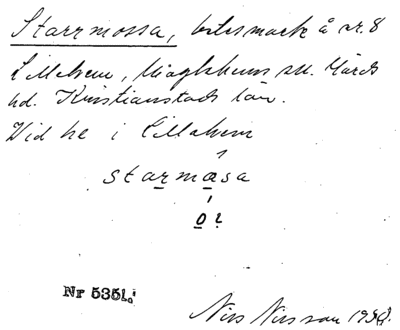 Starrmossa, betesmark å nr. 8
Lillehem, Maglehems sn. Gärds
hd. Kristianstads län.
Vid he i Lillehem
starmåsa
o?
Nr 5351.
Nils Nilsson